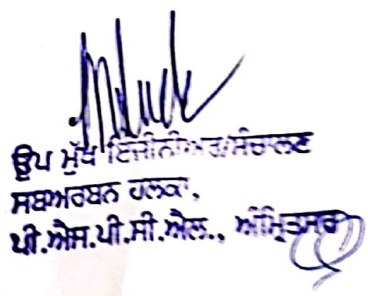 ਉਪ ਮੁੱਖ ਇੰਜੀਨੀਅਰ/ਸੰਚਾਲਣ
ਸਬਅਰਬਨ ਹਲਕਾ,
ਪੀ.ਐਸ.ਪੀ.ਸੀ.ਐਲ., ਅੰਮ੍ਰਿਤਸਰ